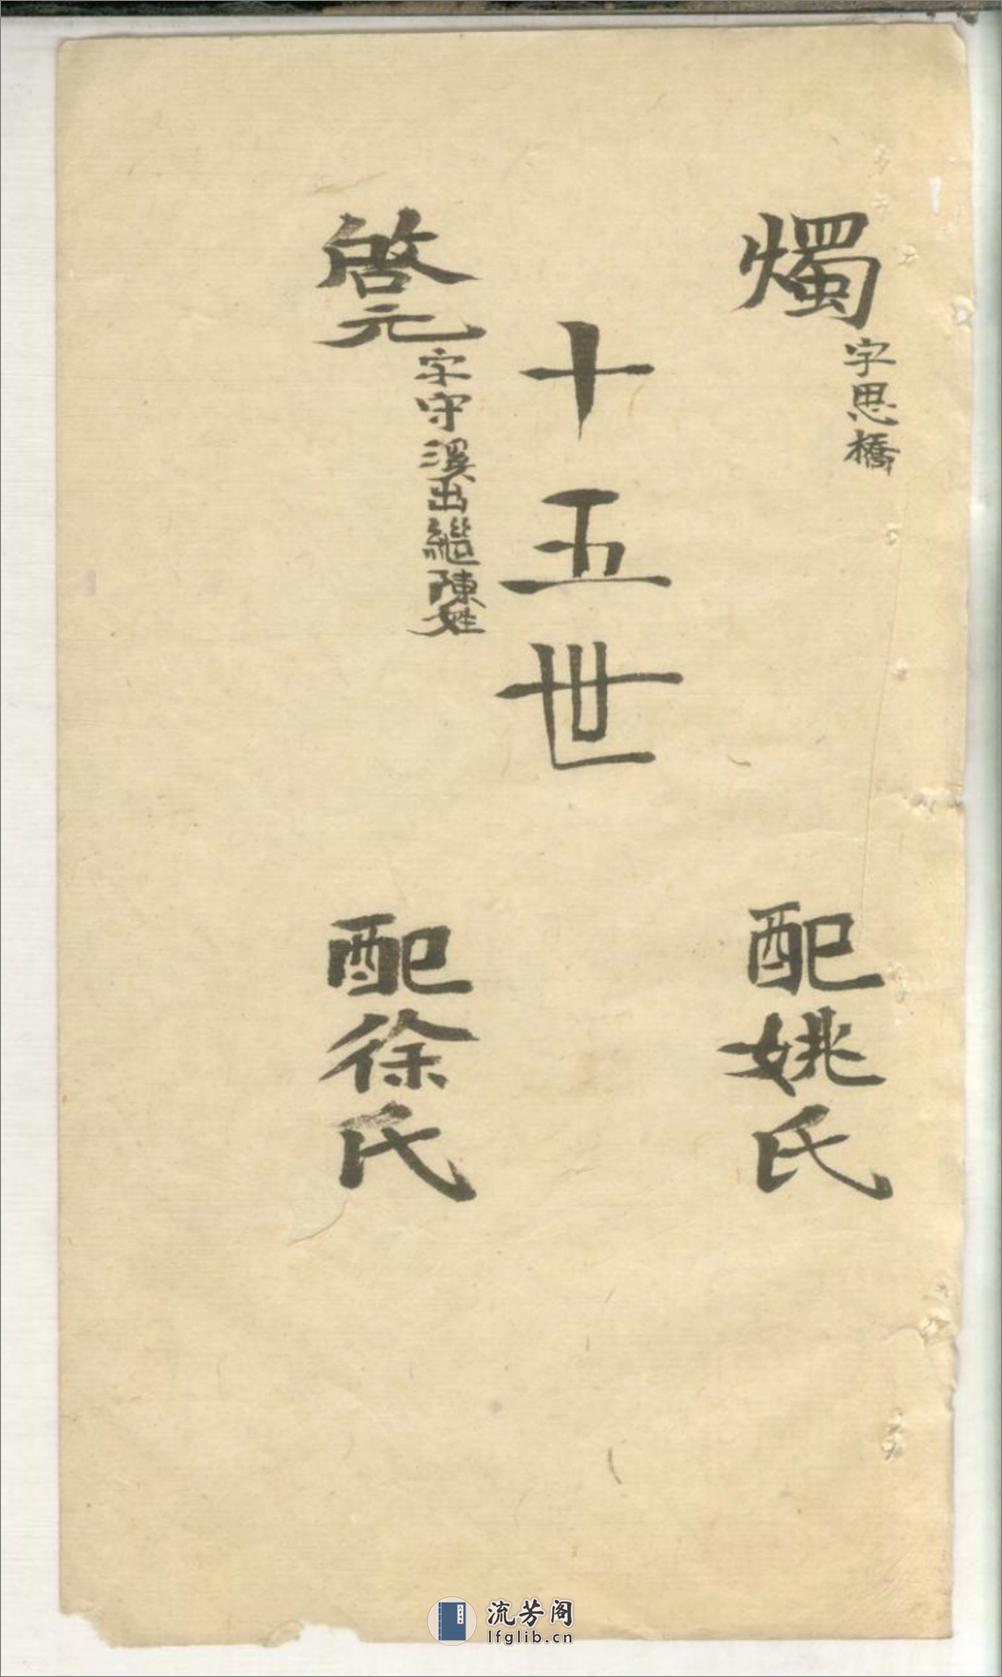 燭
字思橋
配姚氏
十五世
啓元
字守溪出繼陳姓
配徐氏
流芳阁
lfglib.cn